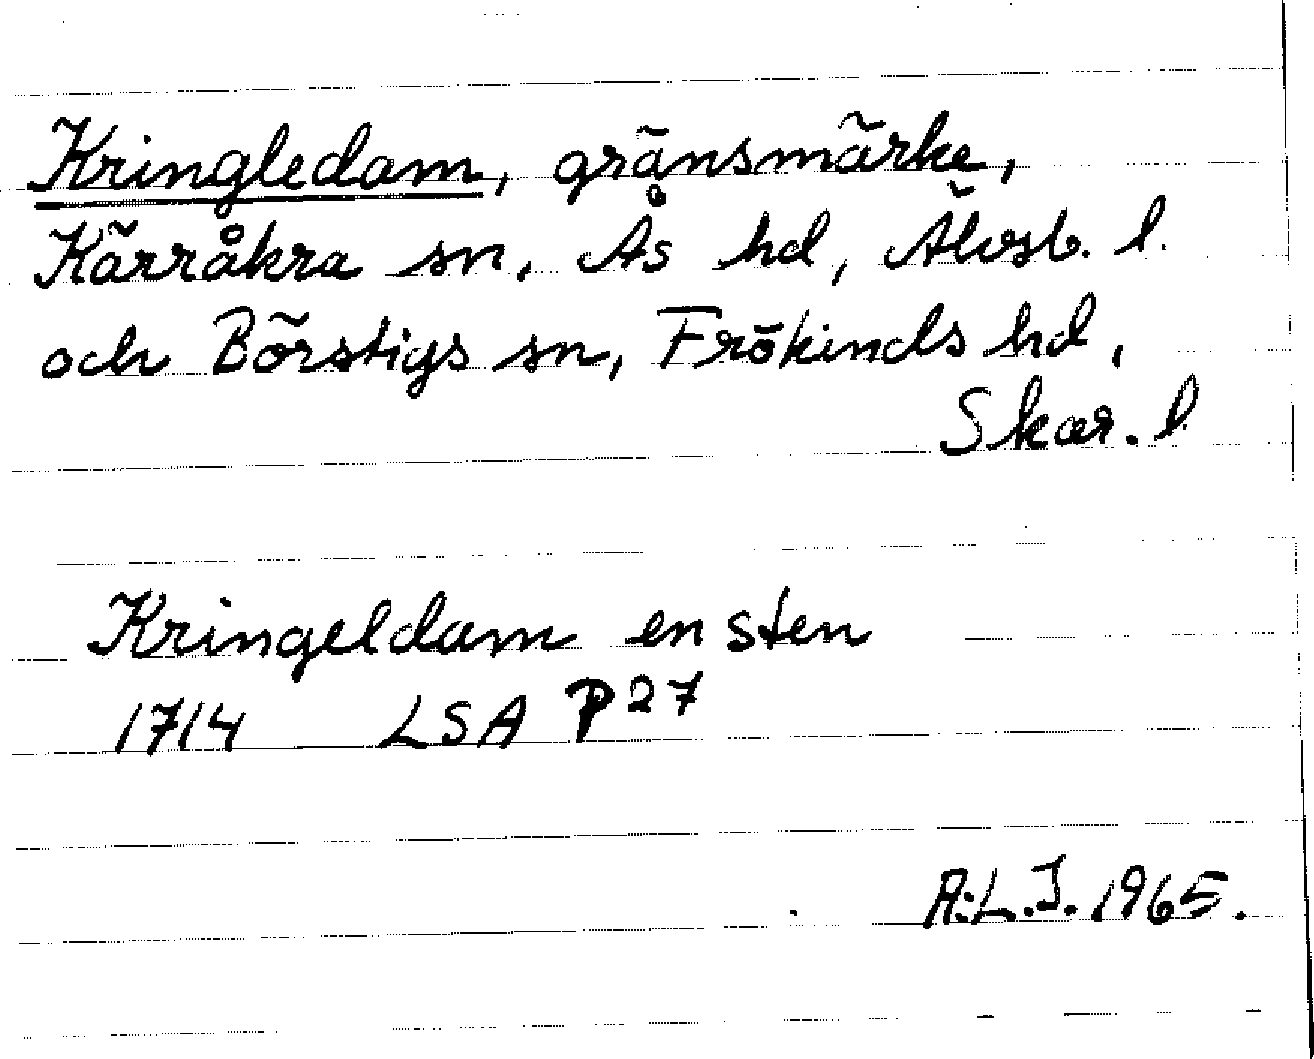 Kringledam, gränsmärke,
Kärråkra sn, Ås hd, Älvsb. l.
och Börstigs sn, Frökinds hd,
Skar. l
Kringeldam en sten
1714 LSA P 27
A.L.J. 1965.